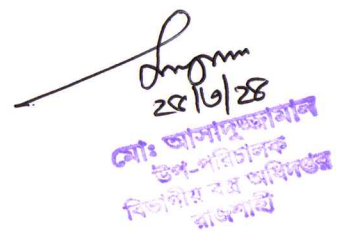 ২৫|৩|২৪
মোঃ আসাদুজ্জামান
উপ-পরিচালক
বিভাগীয় বস্ত্র অধিদপ্তর
রাজশাহী